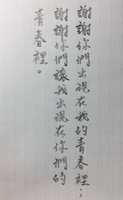 謝謝你們出現在我的青春裡；
謝謝你們讓我出現在你們的
青春裡。